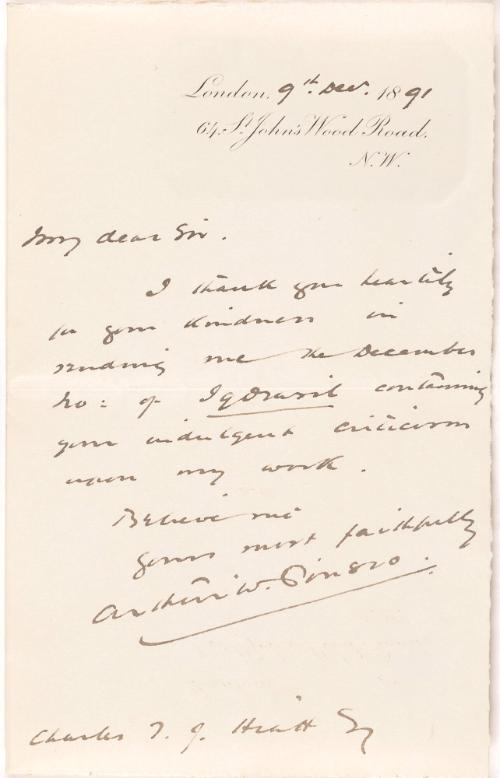 London, 9th. Dec. 1891
64, St. John's Wood Road.
N.W.
My dear Sir.
I thank you heartily
for your kindness in
sending me the December
No: of Igdrasil containing
your indulgent criticism
upon my work.
Believe me
yours most faithfully
Arthur W. Pinero.
Charles T. J. Hiatt Esq